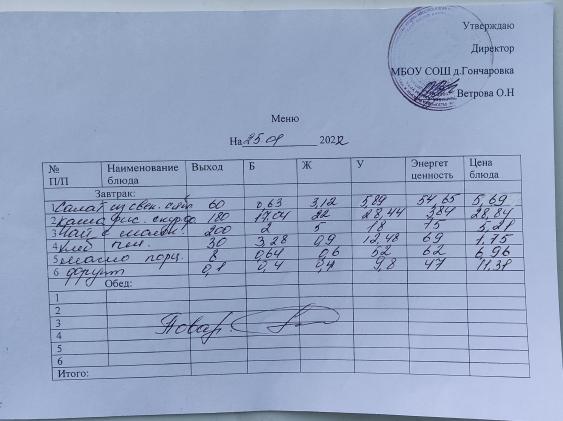 Утверждаю
Директор
МБОУ СОШ д.Гончаровка
Ветрова О.Н
Меню
На 25 09 2022
№ П/П Наименование блюда Выход Б Ж У Энергет ценность Цена блюда
Завтрак:
1 Салат из свек. 60 0,63 3,12 5,89 54,65 5,69
2 Каша 180 17,04 22 28,44 384 28,84
3 Чай с молок. 200 2 5 18 75 5,28
4 хлеб пш. 30 3,28 0,9 12,48 69 1,75
5 масло порц. 8 0,64 0,6 52 62 6,96
6 фрукт 0,1 0,4 0,4 9,8 47 11,38
Обед:
1
2
3
4
Повар:
5
6
Итого: